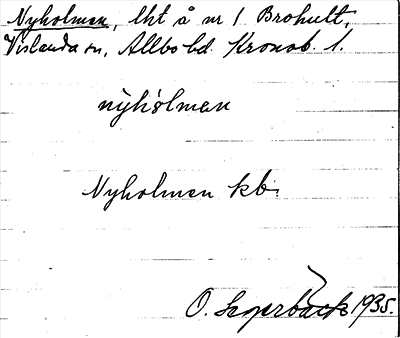 Nyholmen, lht å nr 1 Brohult,
Vislanda sn, Allbo hd. Kronob. l.
nỳhòlman
Nyholmen kb.
O. Sagerbäck 1935.